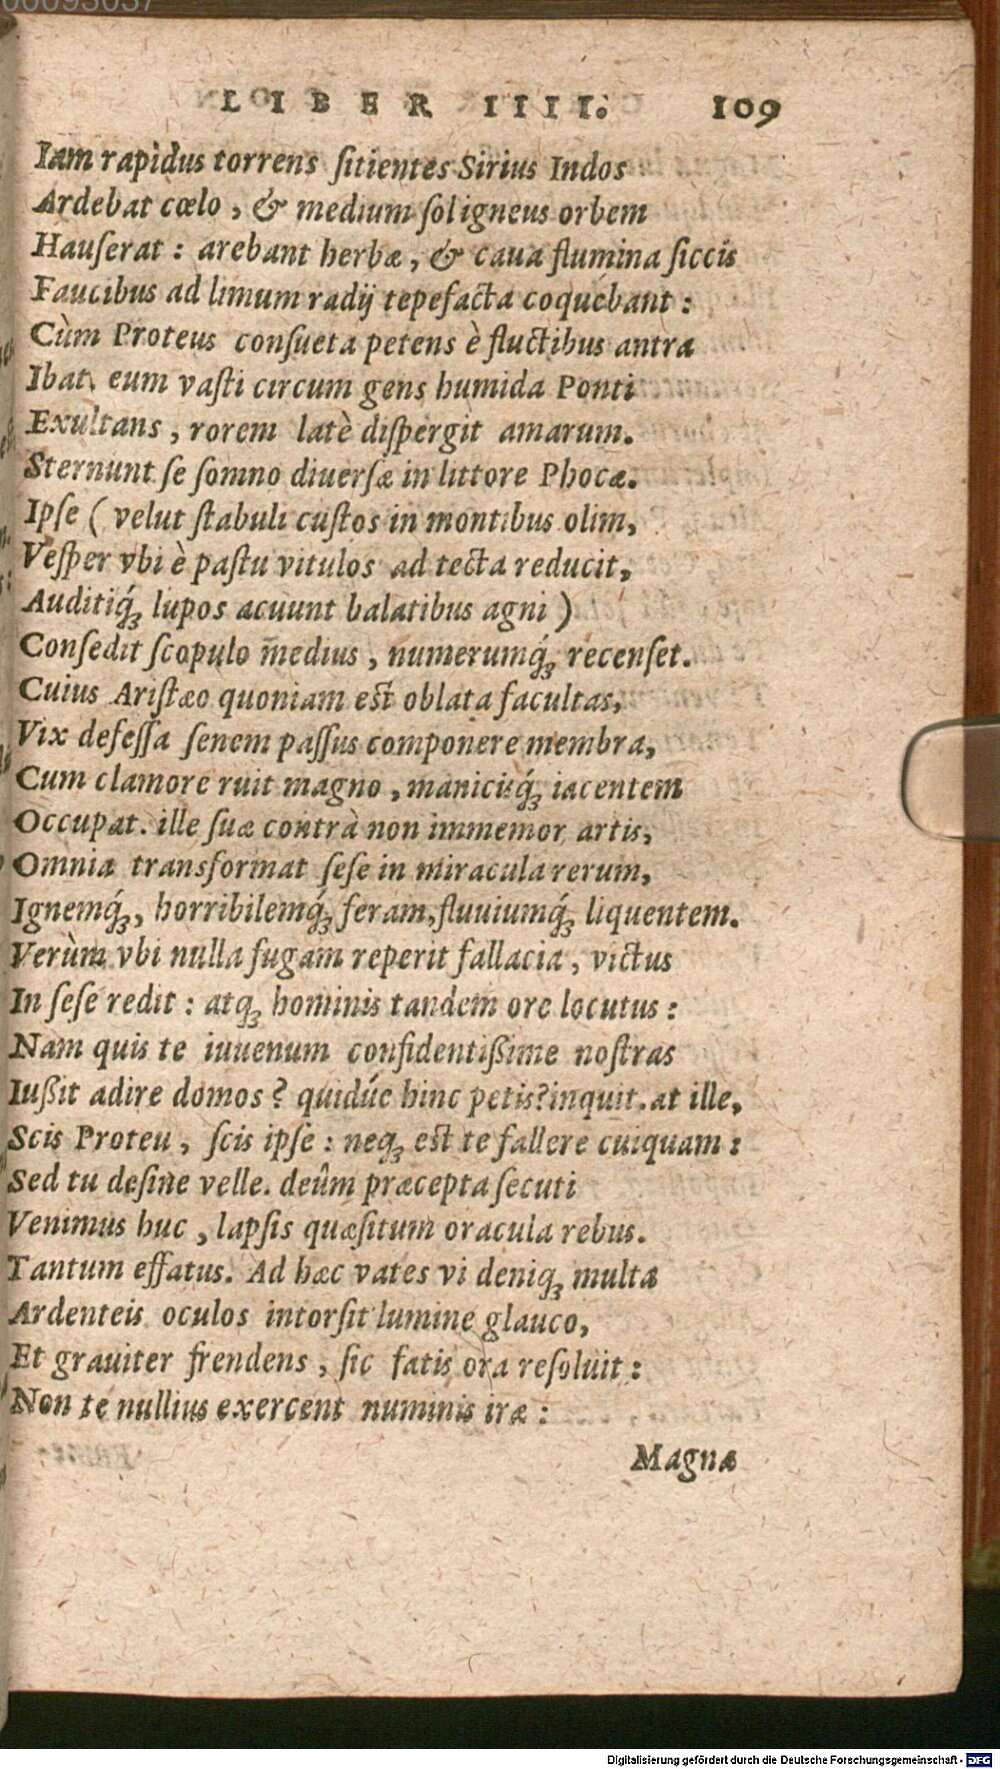 00093037
LIBER IIII. 109
Iam rapidus torrens ſitientes Sirius Indos
Ardebat cœlo, & medium ſol igneus orbem
Hauſerat: arebant herbæ, & caua flumina ſiccis
Faucibus ad limum radij tepefacta coquebant:
Cùm Proteus conſueta petens è fluctibus antra
Ibat, eum vaſti circum gens humida Ponti
Exultans, rorem latè diſpergit amarum.
Sternunt ſe ſomno diuerſæ in littore Phocæ.
Ipſe (velut ſtabuli cuſtos in montibus olim,
Veſper vbi è paſtu vitulos ad tecta reducit,
Auditiq́ꝫ lupos acuunt balatibus agni)
Conſedit ſcopulo medius, numerumq́ꝫ recenſet.
Cuius Ariſtæo quoniam eſt oblata facultas,
Vix defeſſa ſenem paſſus componere membra,
Cum clamore ruit magno, maniciſq́ꝫ iacentem
Occupat. ille ſuæ contrà non immemor artis,
Omnia transformat ſeſe in miracula rerum,
Ignemq́ꝫ, horribilemq́ꝫ feram, fluuiumq́ꝫ liquentem.
Verùm vbi nulla fugam reperit fallacia, victus
In ſeſe redit: atqꝫ hominis tandem ore locutus:
Nam quis te iuuenum confidentißime noſtras
Iußit adire domos? quidúe hinc petis? inquit. at ille,
Scis Proteu, ſcis ipſe: neqꝫ eſt te fallere cuiquam:
Sed tu deſine velle. deûm præcepta ſecuti
Venimus huc, lapſis quæſitum oracula rebus.
Tantum effatus. Ad hæc vates vi deniqꝫ multa
Ardenteis oculos intorſit lumine glauco,
Et grauiter frendens, ſic fatis ora reſoluit:
Non te nullius exercent numinis iræ:
Magnæ
Digitalisierung gefördert durch die Deutsche Forschungsgemeinschaft - DFG